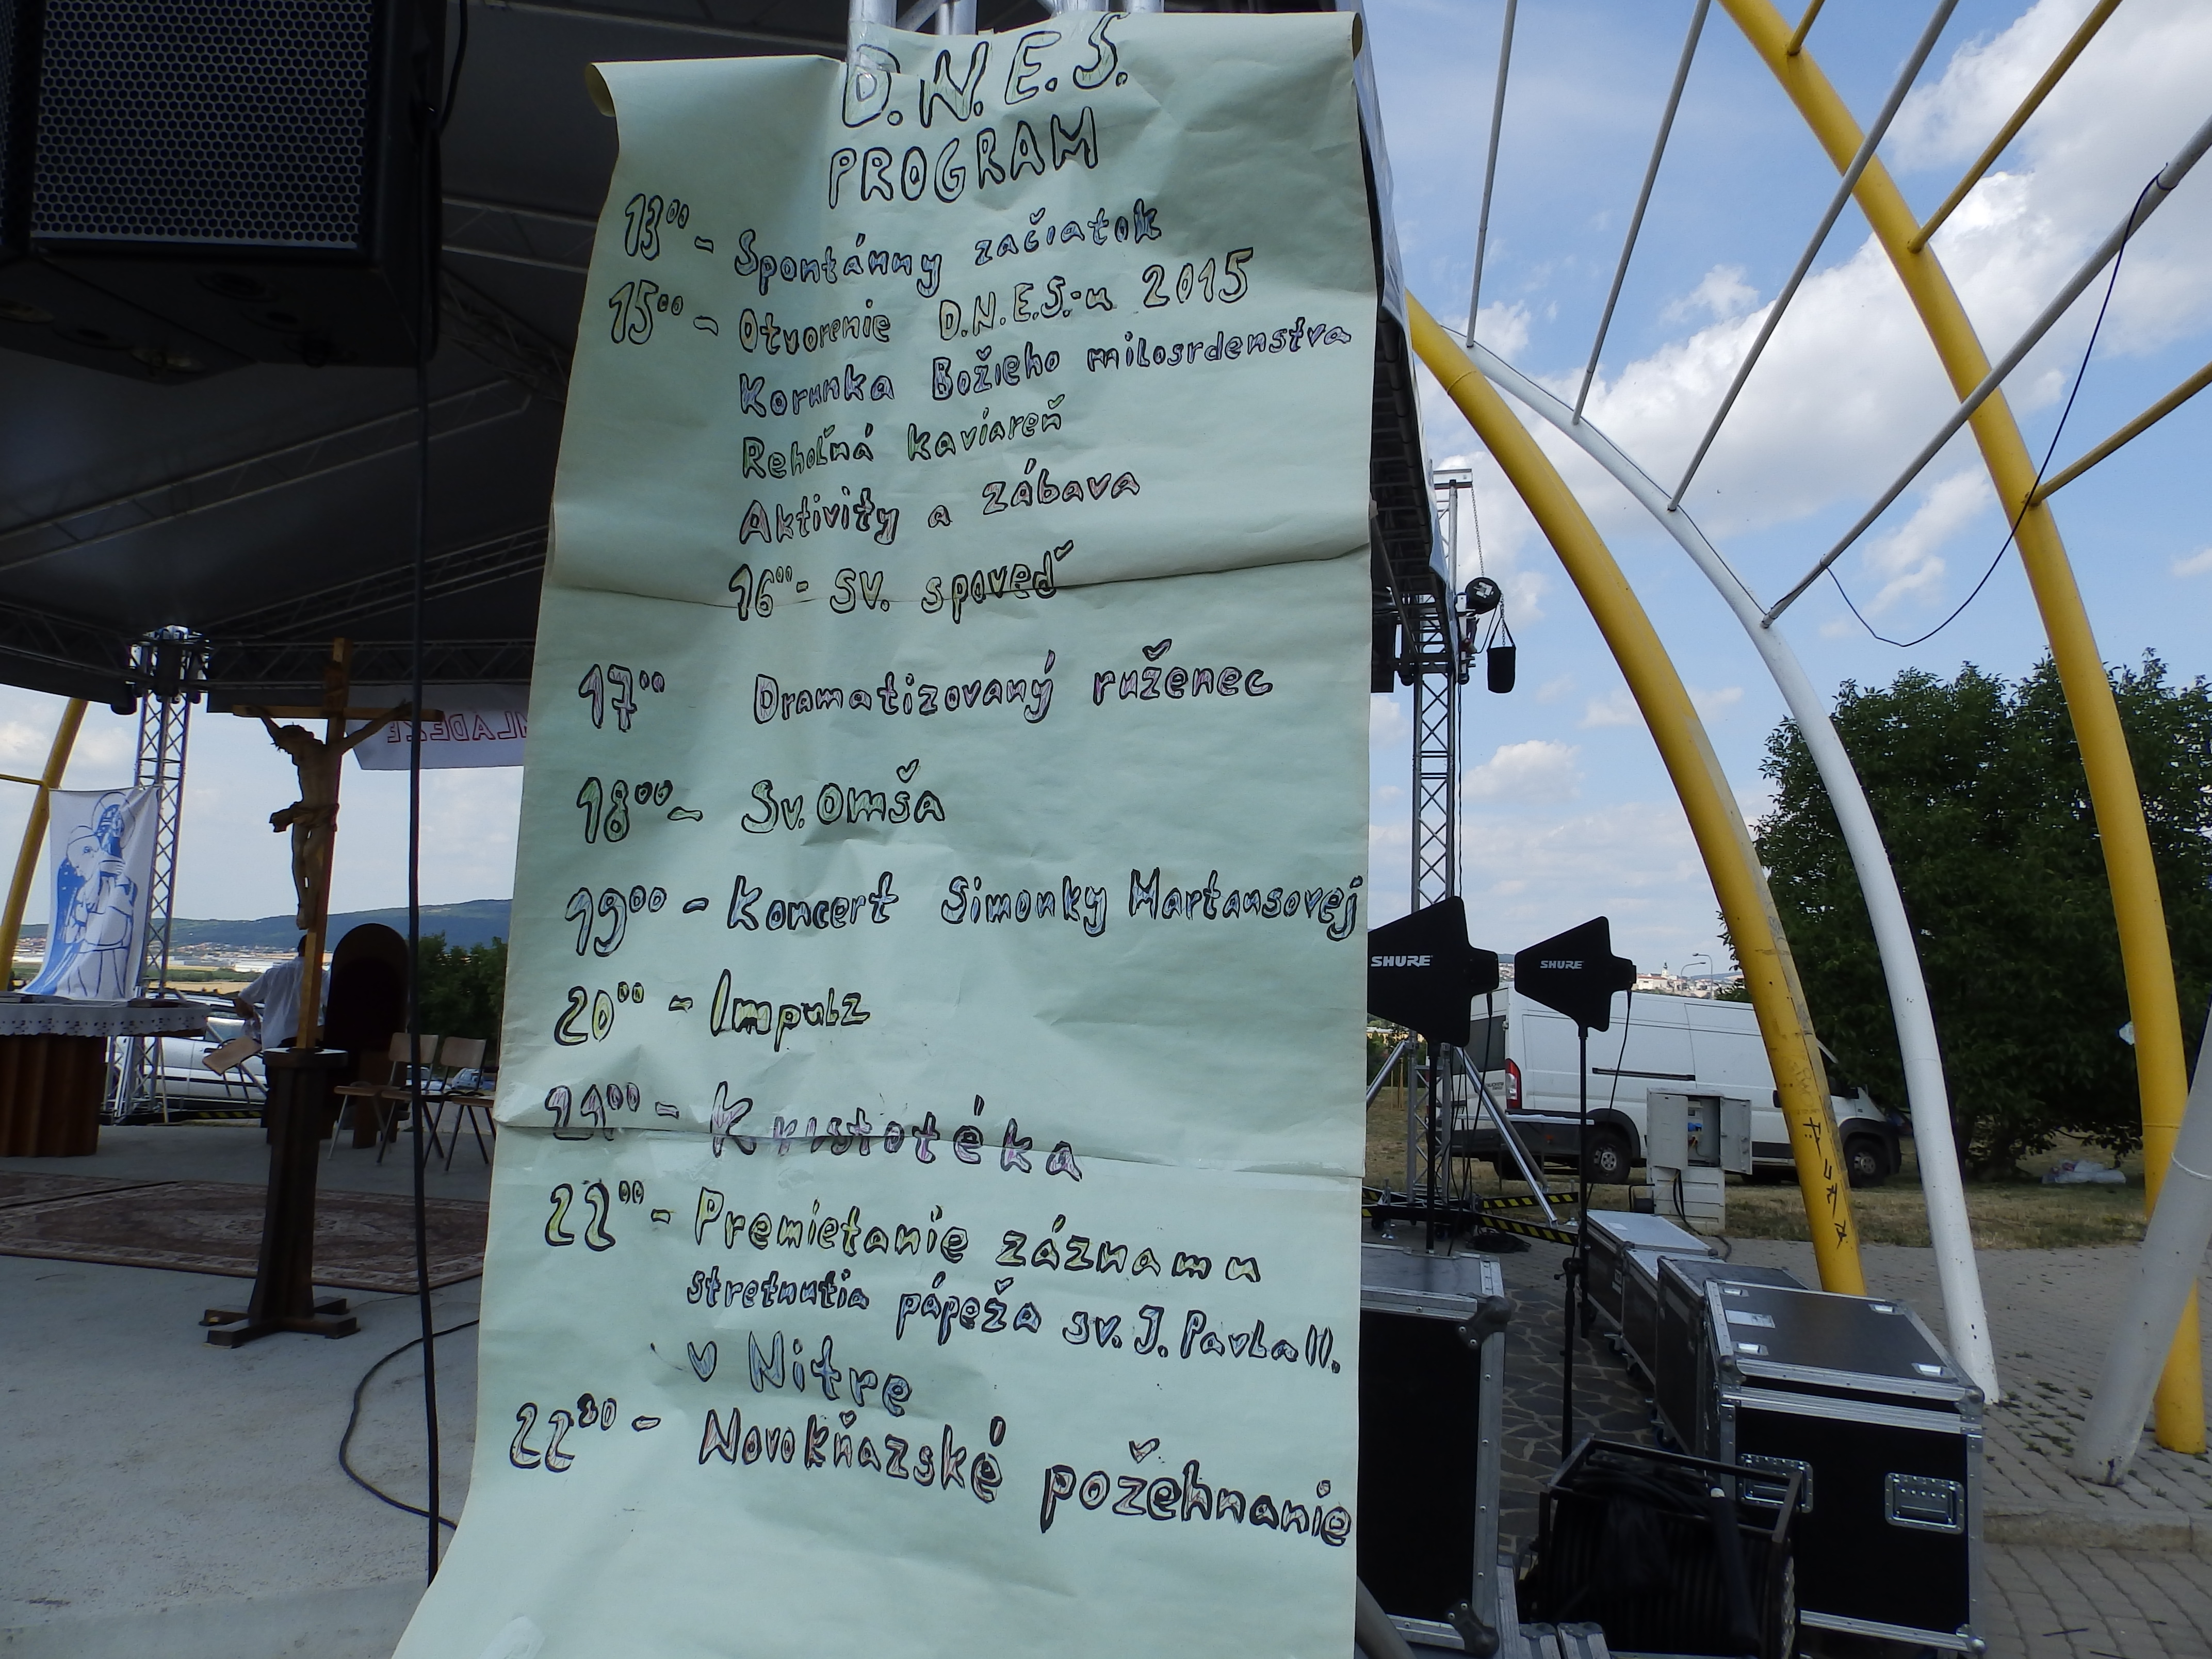 D.N.E.S.
PROGRAM
13⁰⁰ - Spontánny začiatok
15⁰⁰ - Otvorenie D.N.E.S.-u 2015
Korunka Božieho milosrdenstva
Rehoľná kaviareň
Aktivity a zábava
16⁰⁰ - sv. spoveď
17⁰⁰ Dramatizovaný ruženec
18⁰⁰ - Sv. Omša
19⁰⁰ - Koncert Simonky Martausovej
20⁰⁰ - Impulz
21⁰⁰ - Kristotéka
22⁰⁰ - Premietanie záznamu
stretnutia pápeža sv. J. Pavla II.
v Nitre
22³⁰ - Novokňazské požehnanie
MLÁDEŽE
SHURE
SHURE